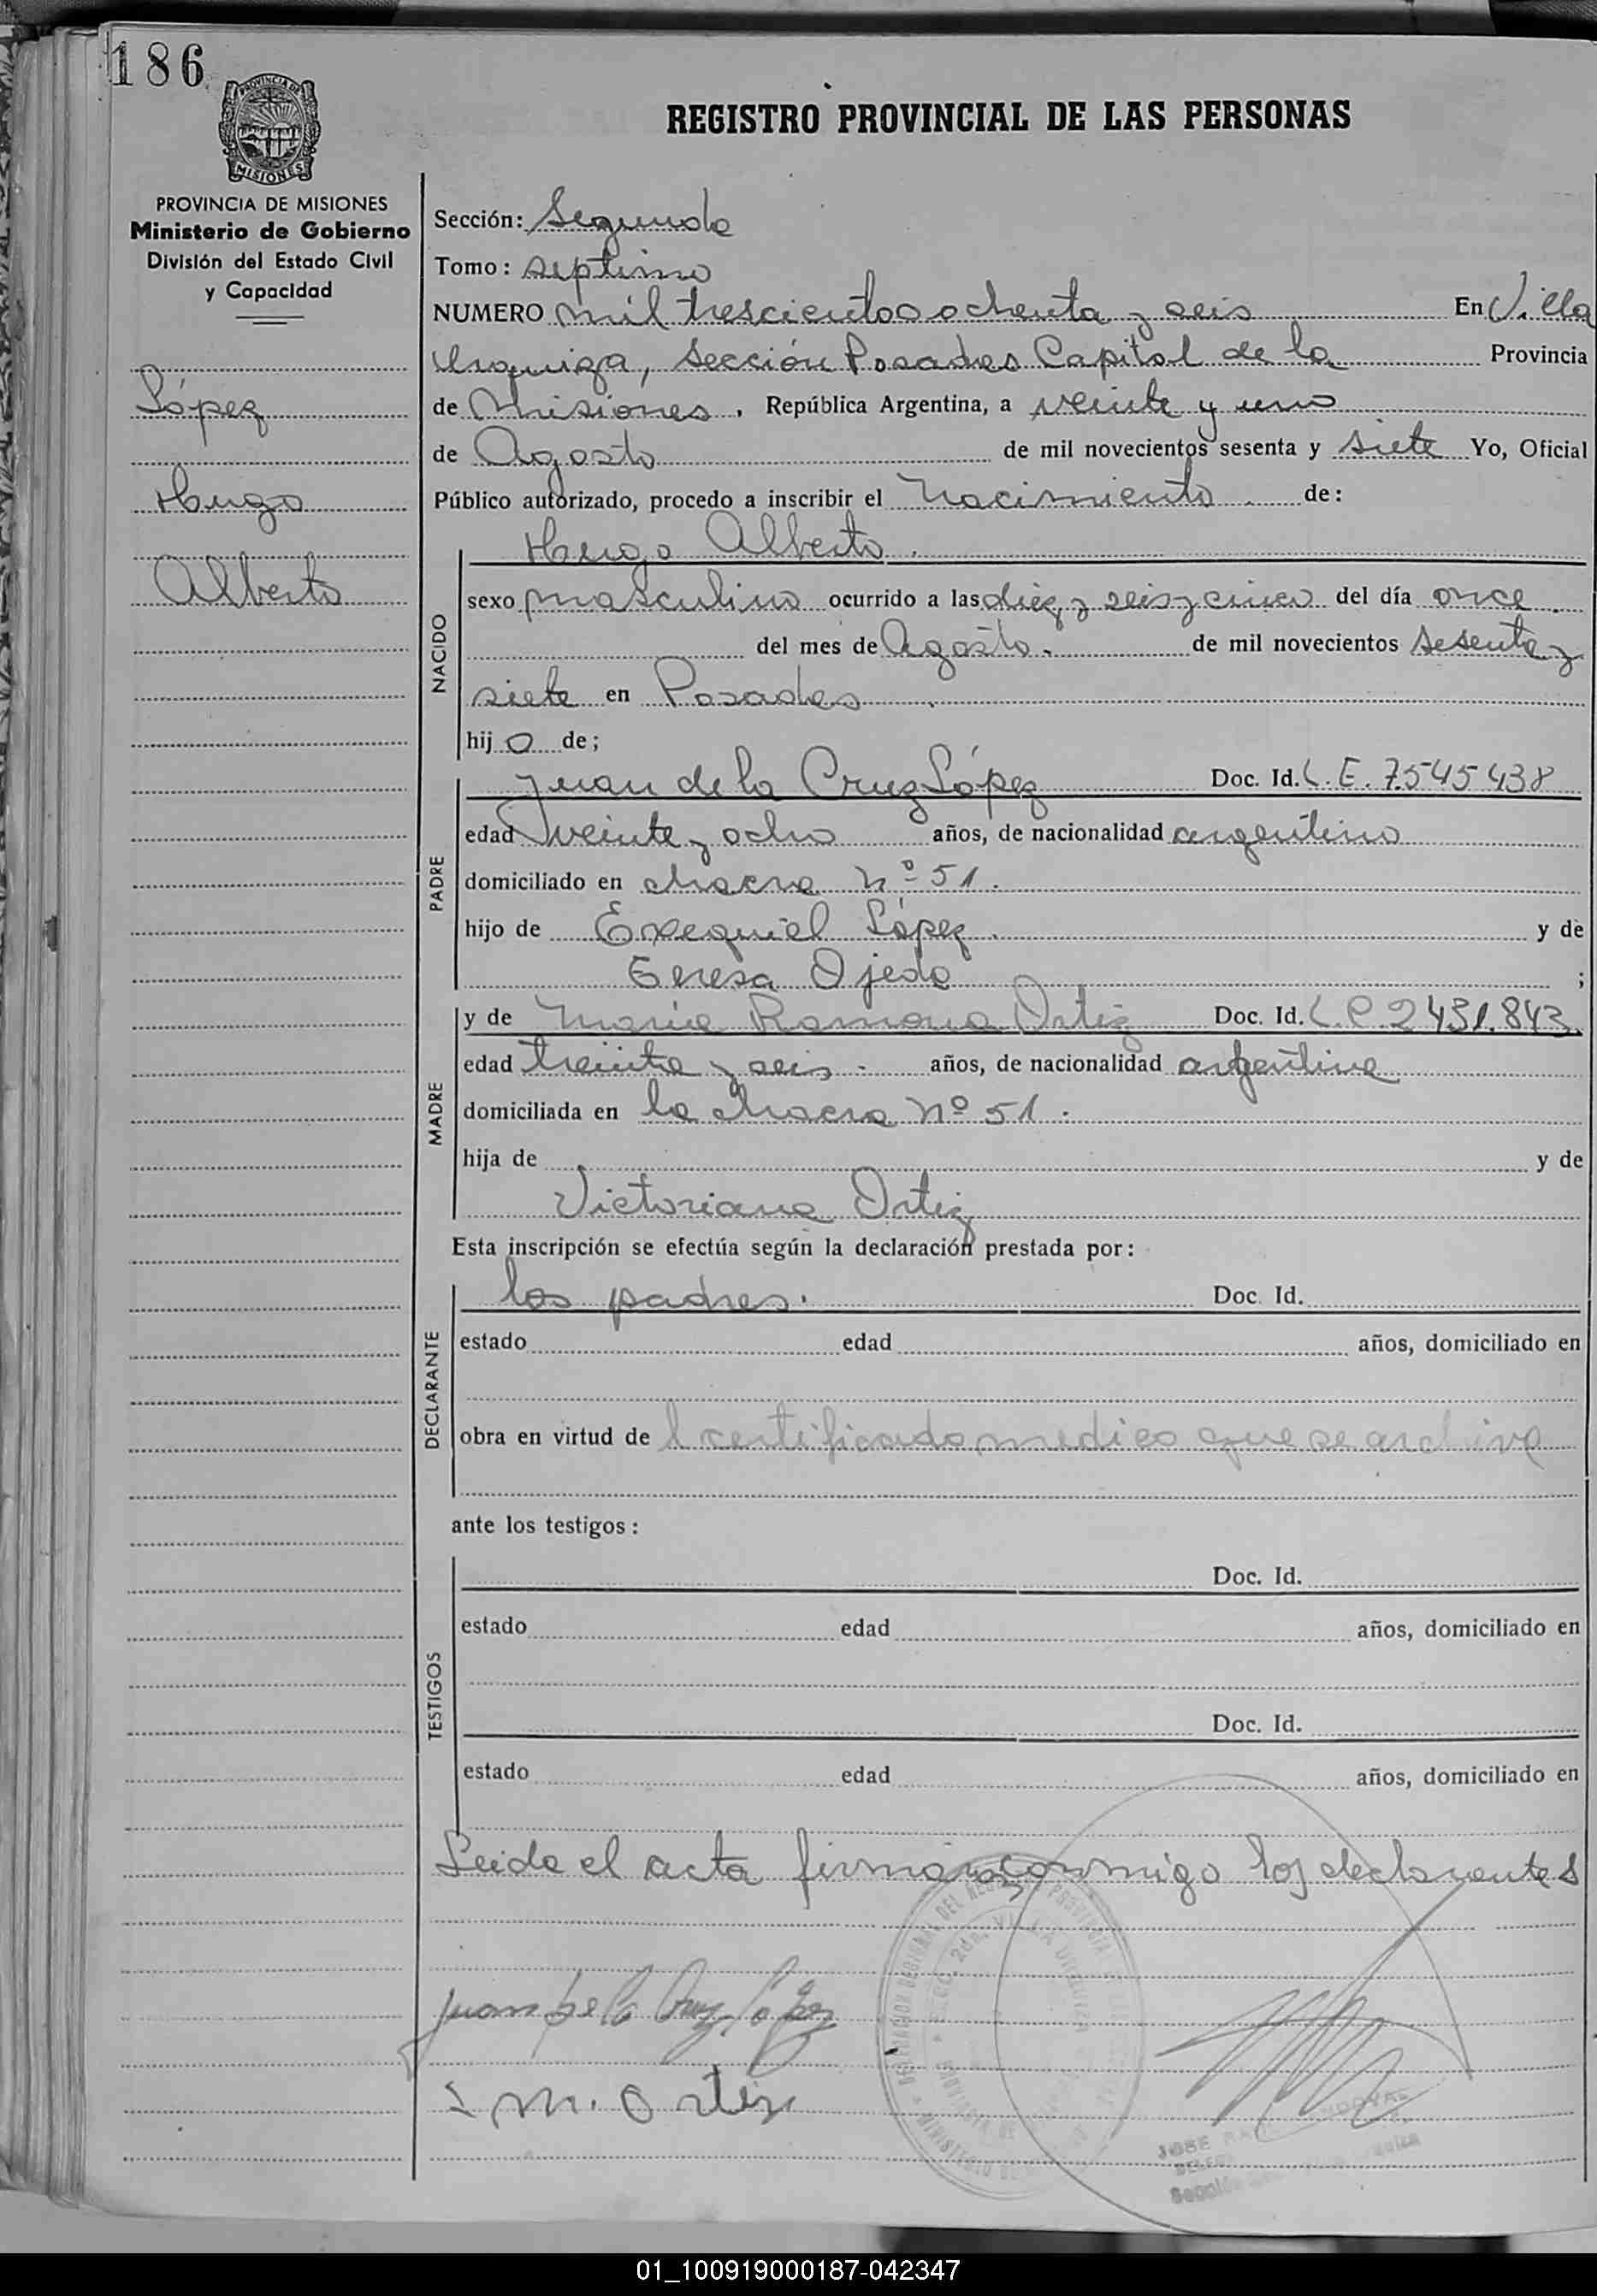 186
PROVINCIA DE
MISIONES
REGISTRO PROVINCIAL DE LAS PERSONAS
PROVINCIA DE MISIONES
Ministerio de Gobierno
División del Estado Civil
y Capacidad
López
Hugo
Alberto
Sección: Segunda
Tomo: septimo
NUMERO mil trescientos ochenta y seis En Villa
Urquiza, Sección Posadas Capital de la Provincia
de Misiones. República Argentina, a veinte y uno
de Agosto de mil novecientos sesenta y siete Yo, Oficial
Público autorizado, procedo a inscribir el Nacimiento de:
NACIDO
Hugo Alberto.
sexo masculino ocurrido a las diez y seis y cinco del día once.
del mes de Agosto. de mil novecientos sesenta y
siete en Posadas.
hijo de;
PADRE
Juan de la Cruz López Doc. Id. L.E. 7545438
edad veinte y ocho años, de nacionalidad argentino
domiciliado en chacra nº 51.
hijo de Exequiel López. y de
Teresa Ojeda ;
MADRE
y de María Ramona Ortiz Doc. Id. L.C. 2431.843.
edad treinta y seis. años, de nacionalidad argentina
domiciliada en la chacra Nº 51.
hija de y de
Victoriana Ortiz
Esta inscripción se efectúa según la declaración prestada por:
DECLARANTE
los padres. Doc. Id.
estado edad años, domiciliado en
obra en virtud de l certificado medico que se archiva
ante los testigos:
TESTIGOS
Doc. Id.
estado edad años, domiciliado en
Doc. Id.
estado edad años, domiciliado en
Leida el acta firman conmigo los declarantes
Juan de la Cruz López
M. Ortiz
VILLA URQUIZA
JOSE
01_100919000187-042347